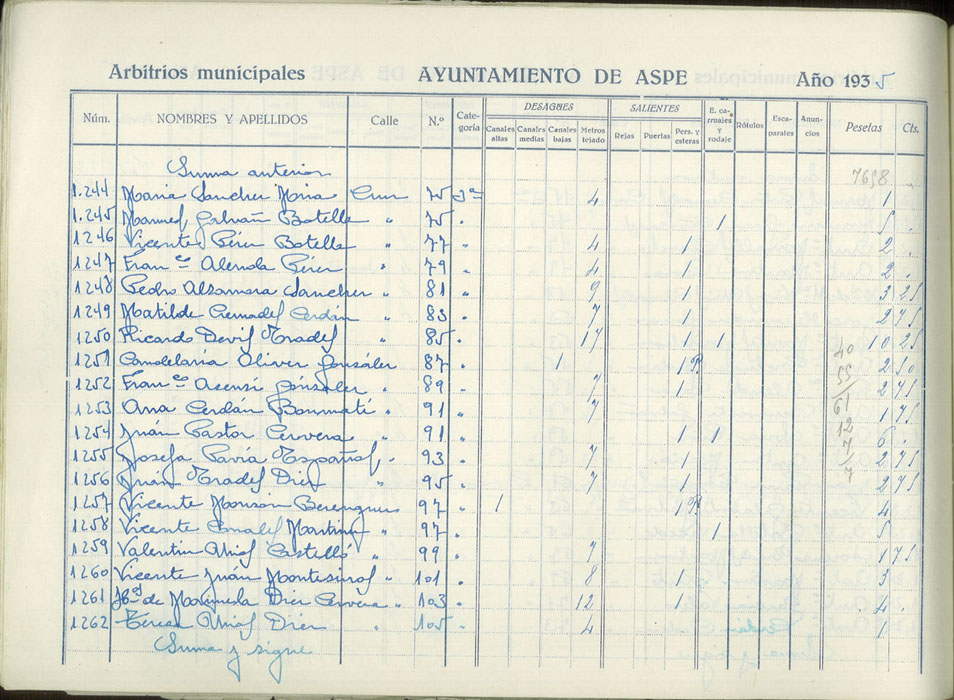 Arbitrios municipales AYUNTAMIENTO DE ASPE Año 1935
Núm. NOMBRES Y APELLIDOS Calle N.º Categoría DESAGÜES Canales altas Canales medias Canales bajas Metros tejado SALIENTES Rejas Puertas Pers. y esteras E. carruajes y rodaje Rótulos Escaparates Anuncios Pesetas Cts.
Suma anterior 7698 .
1.244 Maria Sanchez Mira Cruz 75 3ª 4 1
1.245 Manuel Galvañ Botella " 75 . 1 5 .
1246 Vicente Pérez Botella " 77 " 4 1 2 .
1247 Franco Alenda Pérez " 79 " 4 1 2 .
1248 Pedro Alzamora Sanchez " 81 " 9 1 3 25
1249 Matilde Cerdán " 83 . 7 1 2 75
1250 Ricardo Tradel " 85 . 17 1 1 10 25
1251 Candelaria Oliver González 87 " 1 1 2 50
1252 Franco Asensi González " 89 " 7 1 2 75
1253 Ana Cerdán Bonmatí " 91 " 7 1 75
1254 Juán Pastor Cervera " 91 " 1 1 6 .
1255 Josefa Pavía Español " 93 . 7 1 2 75
1256 Juán Tradel Diez " 95 . 7 1 2 75
1257 Vicente Monzón Berenguer 97 " 1 1 4
1258 Vicente Martinez " 97 . 1 5
1259 Valentin Castelló " 99 . 7 1 75
1260 Vicente Juán " 101 . 8 1 3
1261 de Diez Cervera " 103 . 12 1 4 .
1262 Teresa Diez " 105 . 4 1
Suma y sigue
40
55
61
12
7
7